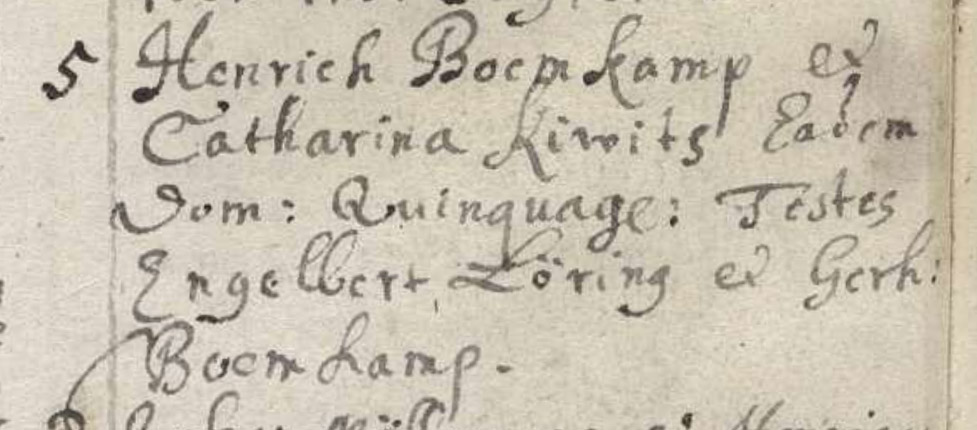 5 Henrich Boemkamp et
Catharina Kiwits Eadem
Dom: Quinquage: Testes
Engelbert Löring et Gerh:
Boemkamp.